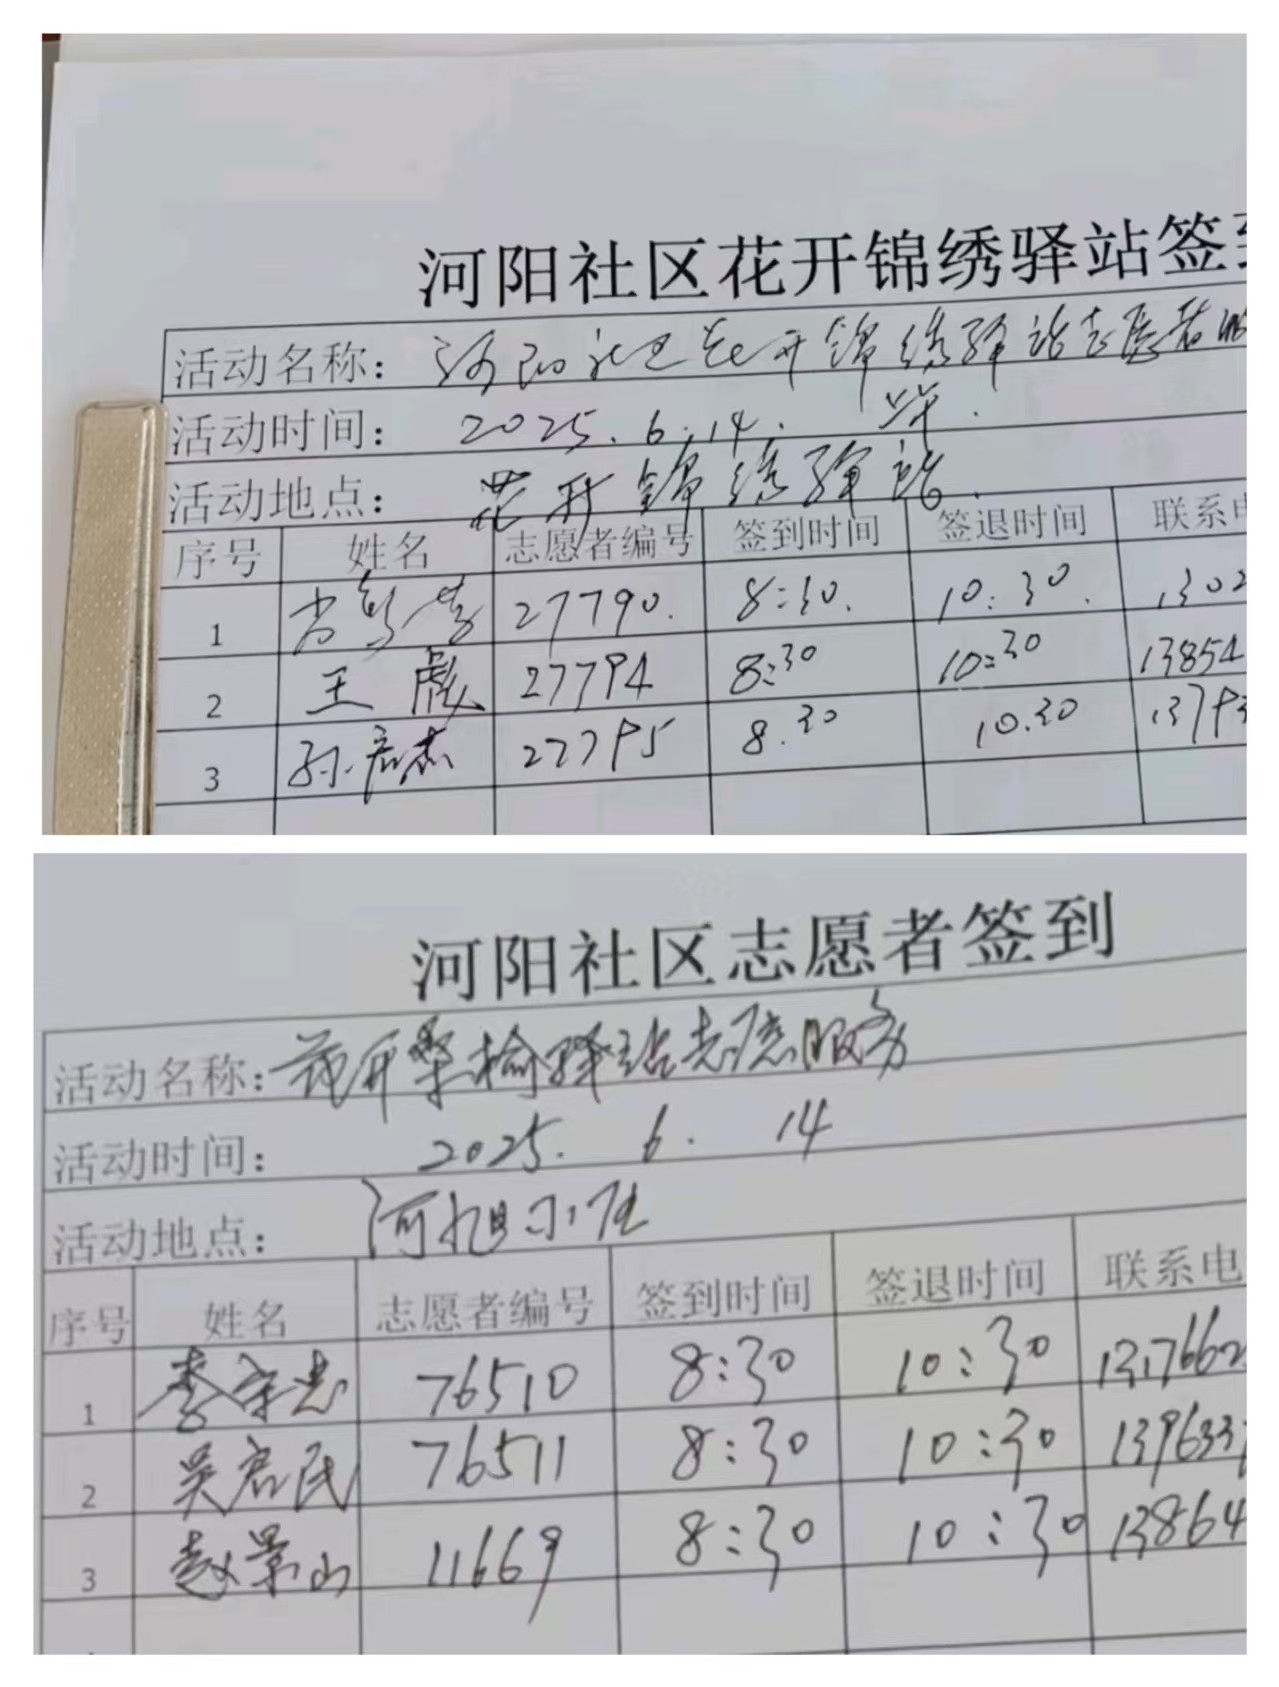 河阳社区花开锦绣驿站签到
活动名称: 河阳社区花开锦绣驿站志愿者服
活动时间: 2025.6.14. 半.
活动地点: 花开锦绣驿站.
序号 姓名 志愿者编号 签到时间 签退时间 联系电
1 27790. 8:30. 10:30. 1302
2 王彪 27794 8:30 10:30 13854
3 孙启杰 27795 8.30 10.30 13793
河阳社区志愿者签到
活动名称: 花开桑榆驿站志愿服务
活动时间: 2025. 6. 14
活动地点: 河旭小区
序号 姓名 志愿者编号 签到时间 签退时间 联系电
1 李守志 76510 8:30 10:30 1317662
2 吴启民 76511 8:30 10:30 139633
3 赵景山 11669 8:30 10:30 13864